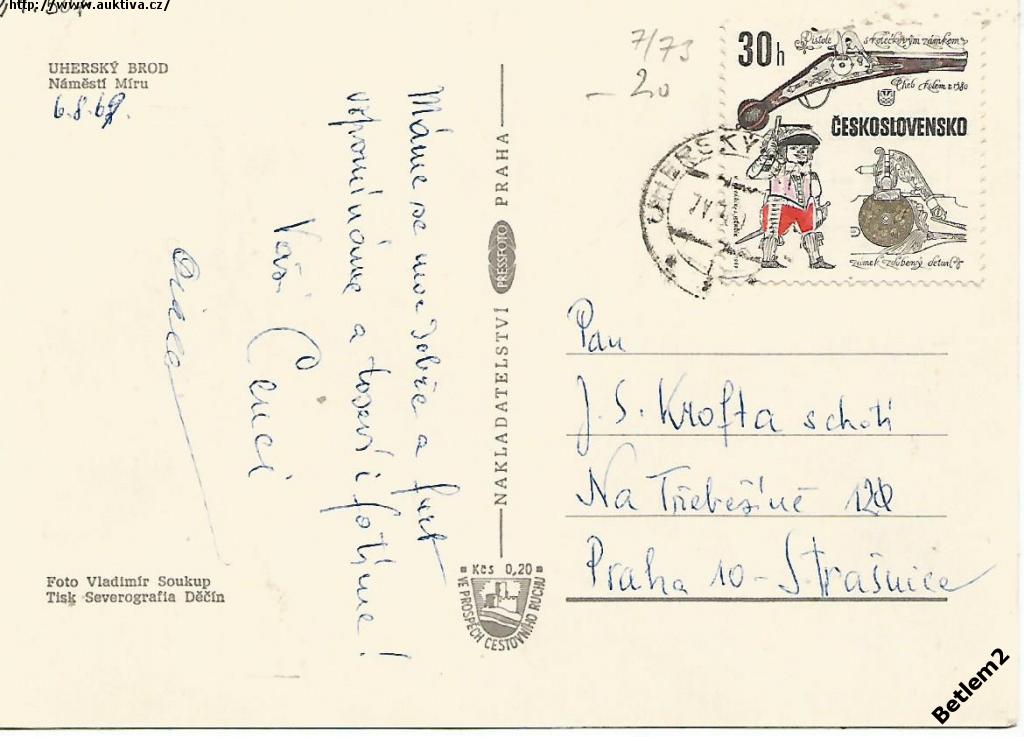 http://www.auktiva.cz/
UHERSKÝ BROD
Náměstí Míru
6.8.69.
Máme se moc dobře a furt
vzpomínáme a fotíme!
Vaši Cenci
NAKLADATELSTVÍ PRESSFOTO PRAHA
Foto Vladimír Soukup
Tisk Severografia Děčín
Kčs 0,20
VE PROSPĚCH CESTOVNÍHO RUCHU
7/73
- 20
30h
Pistole s kolečkovým zámkem
Cheb kolem r. 1580
ČESKOSLOVENSKO
zámek zdobený detail
UHERSKÝ
Pan
J. S. Krofta s chotí
Na Třebešíně
Praha 10 - Strašnice
Betlem2